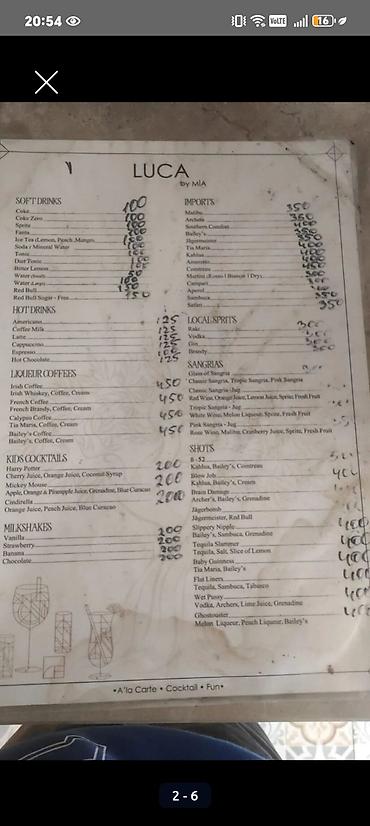 20:54
VoLTE
16
LUCA
by MIA
SOFT DRINKS
Coke 100
Coke Zero 100
Sprite 100
Fanta 100
Ice Tea (Lemon, Peach, Mango)
Soda / Mineral Water 100
Tonic 100
Diet Tonic
Bitter Lemon
Water (Small) 50
Water (Large) 100
Red Bull 150
Red Bull Sugar - Free 150
HOT DRINKS
Americano 125
Coffee Milk 125
Latte 125
Cappuccino 125
Espresso 100
Hot Chocolate 125
LIQUEUR COFFEES
Irish Coffee 450
Irish Whiskey, Coffee, Cream
French Coffee 450
French Brandy, Coffee, Cream
Calypso Coffee 450
Tia Maria, Coffee, Cream
Bailey's Coffee 450
Bailey's, Coffee, Cream
KIDS COCKTAILS
Harry Potter 200
Cherry Juice, Orange Juice, Coconut Syrup
Mickey Mouse 200
Apple, Orange & Pineapple Juice, Grenadine, Blue Curacao
Cindirella 200
Orange Juice, Peach Juice, Blue Curacao
MILKSHAKES
Vanilla 200
Strawberry 200
Banana 200
Chocolate 200
IMPORTS
Malibu 350
Archers 350
Southern Comfort 400
Bailey's
Jägermeister
Tia Maria 400
Kahlua 400
Amaretto 400
Cointreau 400
Martini (Rosso | Bianco | Dry) 300
Campari
Aperol
Sambuca 350
Safari 350
LOCAL SPRITS
Rakı 300
Vodka 300
Gin 300
Brandy 300
SANGRIAS
Glass of Sangria
Classic Sangria, Tropic Sangria, Pink Sangria
Classic Sangria -Jug
Red Wine, Orange Juice, Lemon Juice, Sprite, Fresh Fruit
Tropic Sangria - Jug
White Wine, Melon Liqueur, Sprite, Fresh Fruit
Pink Sangria - Jug
Rose Wine, Malibu, Cranberry Juice, Sprite, Fresh Fruit
SHOTS
B - 52
Kahlua, Bailey's, Cointreau
Blow Job
Kahlua, Bailey's, Cream
Brain Damage
Archer's, Bailey's, Grenadine
Jägerbomb
Jägermeister, Red Bull
Slippery Nipple 400
Bailey's, Sambuca, Grenadine
Tequila Slammer 400
Tequila, Salt, Slice of Lemon
Baby Guinness 400
Tia Maria, Bailey's
Flat Liners 400
Tequila, Sambuca, Tabasco
Wet Pussy 400
Vodka, Archers, Lime Juice, Grenadine
Ghostbuster
Melon Liqueur, Peach Liqueur, Bailey's
•A'la Carte • Cocktail • Fun•
2 - 6